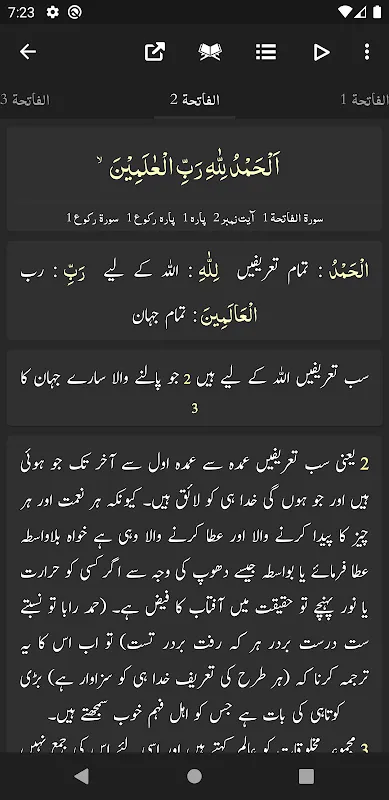 7:23
الفاتحة 1
الفاتحة 2
الفاتحة 3
اَلْحَمْدُ لِلّٰهِ رَبِّ الْعٰلَمِيْنَ ۙ
سورة الفاتحة 1 آیت نمبر 2 پارہ 1 پارہ رکوع 1 سورۃ رکوع 1
الْحَمْدُ : تمام تعریفیں لِلّٰهِ : اللہ کے لیے رَبِّ : رب
الْعَالَمِيْنَ : تمام جہان
سب تعریفیں اللہ کے لیے ہیں 2 جو پالنے والا سارے جہان کا
3
2 یعنی سب تعریفیں عمدہ سے عمدہ اول سے آخر تک جو ہوئی
ہیں اور جو ہوں گی خدا ہی کو لائق ہیں۔ کیونکہ ہر نعمت اور ہر
چیز کا پیدا کرنے والا اور عطا کرنے والا وہی ہے خواہ بلاواسطہ
عطا فرمائے یا بواسطہ جیسے دھوپ کی وجہ سے اگر کسی کو حرارت
یا نور پہنچے تو حقیقت میں آفتاب کا فیض ہے۔ (حمد رابا تو نسبتے
ست درست بردر ہر کہ رفت بردر تست) تو اب اس کا یہ
ترجمہ کرنا کہ (ہر طرح کی تعریف خدا ہی کو سزاوار ہے) بڑی
کوتاہی کی بات ہے جس کو اہل فہم خوب سمجھتے ہیں۔
3 مجموعہ مخلوقات کو عالم کہتے ہیں اور اسی لئے اس کی جمع نہیں